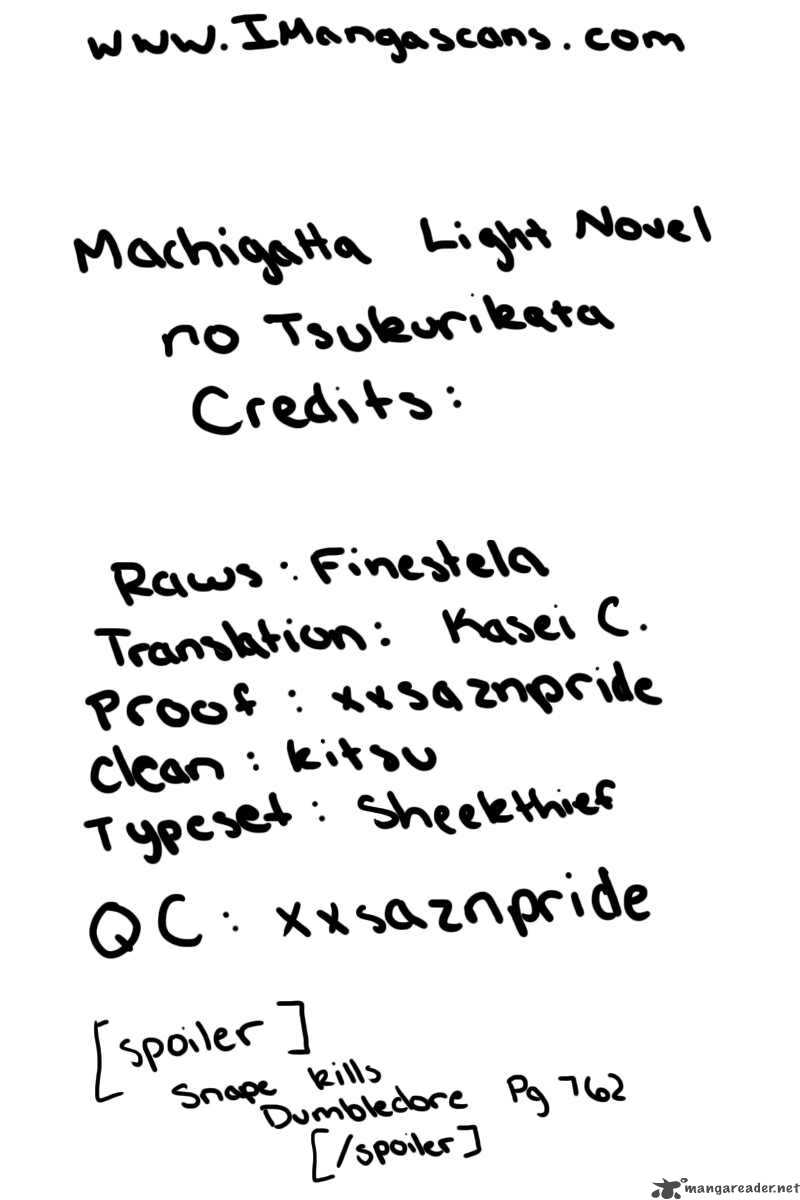 www.IMangascans.com
Machigatta Light Novel
no Tsukurikata
Credits:
Raws: Finestela
Translation: Kasei C.
Proof: xxsaznpride
Clean: kitsu
Typeset: Sheekthief
QC: xxsaznpride
[spoiler]
Snape kills
Dumbledore Pg 762
[/spoiler]
mangareader.net